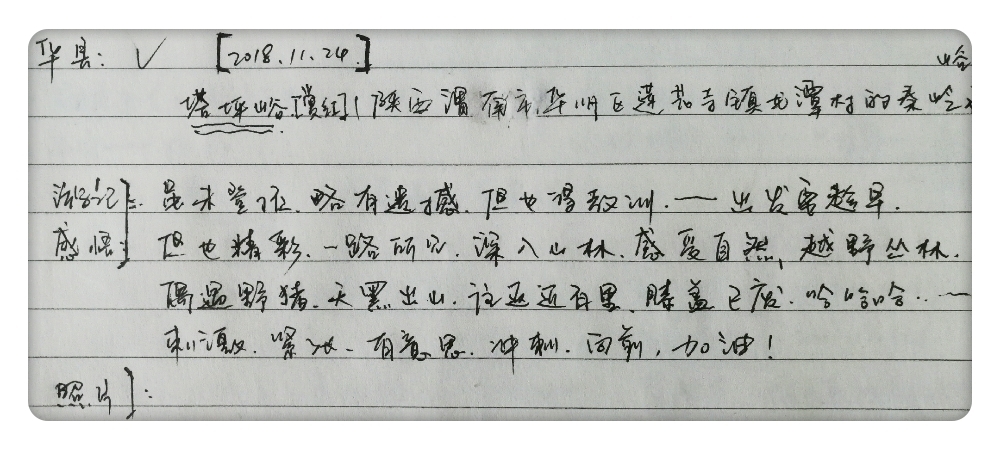 华县: ✓ [2018.11.24.]
峪
塔坪峪[赏红]|陕西渭南市华州区莲花寺镇龙潭村的秦岭
游记]: 虽未登顶.略有遗憾.但也得教训.——出发要趁早.
感悟:] 但也精彩.一路所见.深入山林.感受自然,越野丛林.
偶遇野猪.天黑出山.往返近百里.膝盖已废.哈哈哈..—
刺激.紧张.有意思.冲刺.向前,加油!
照片]: